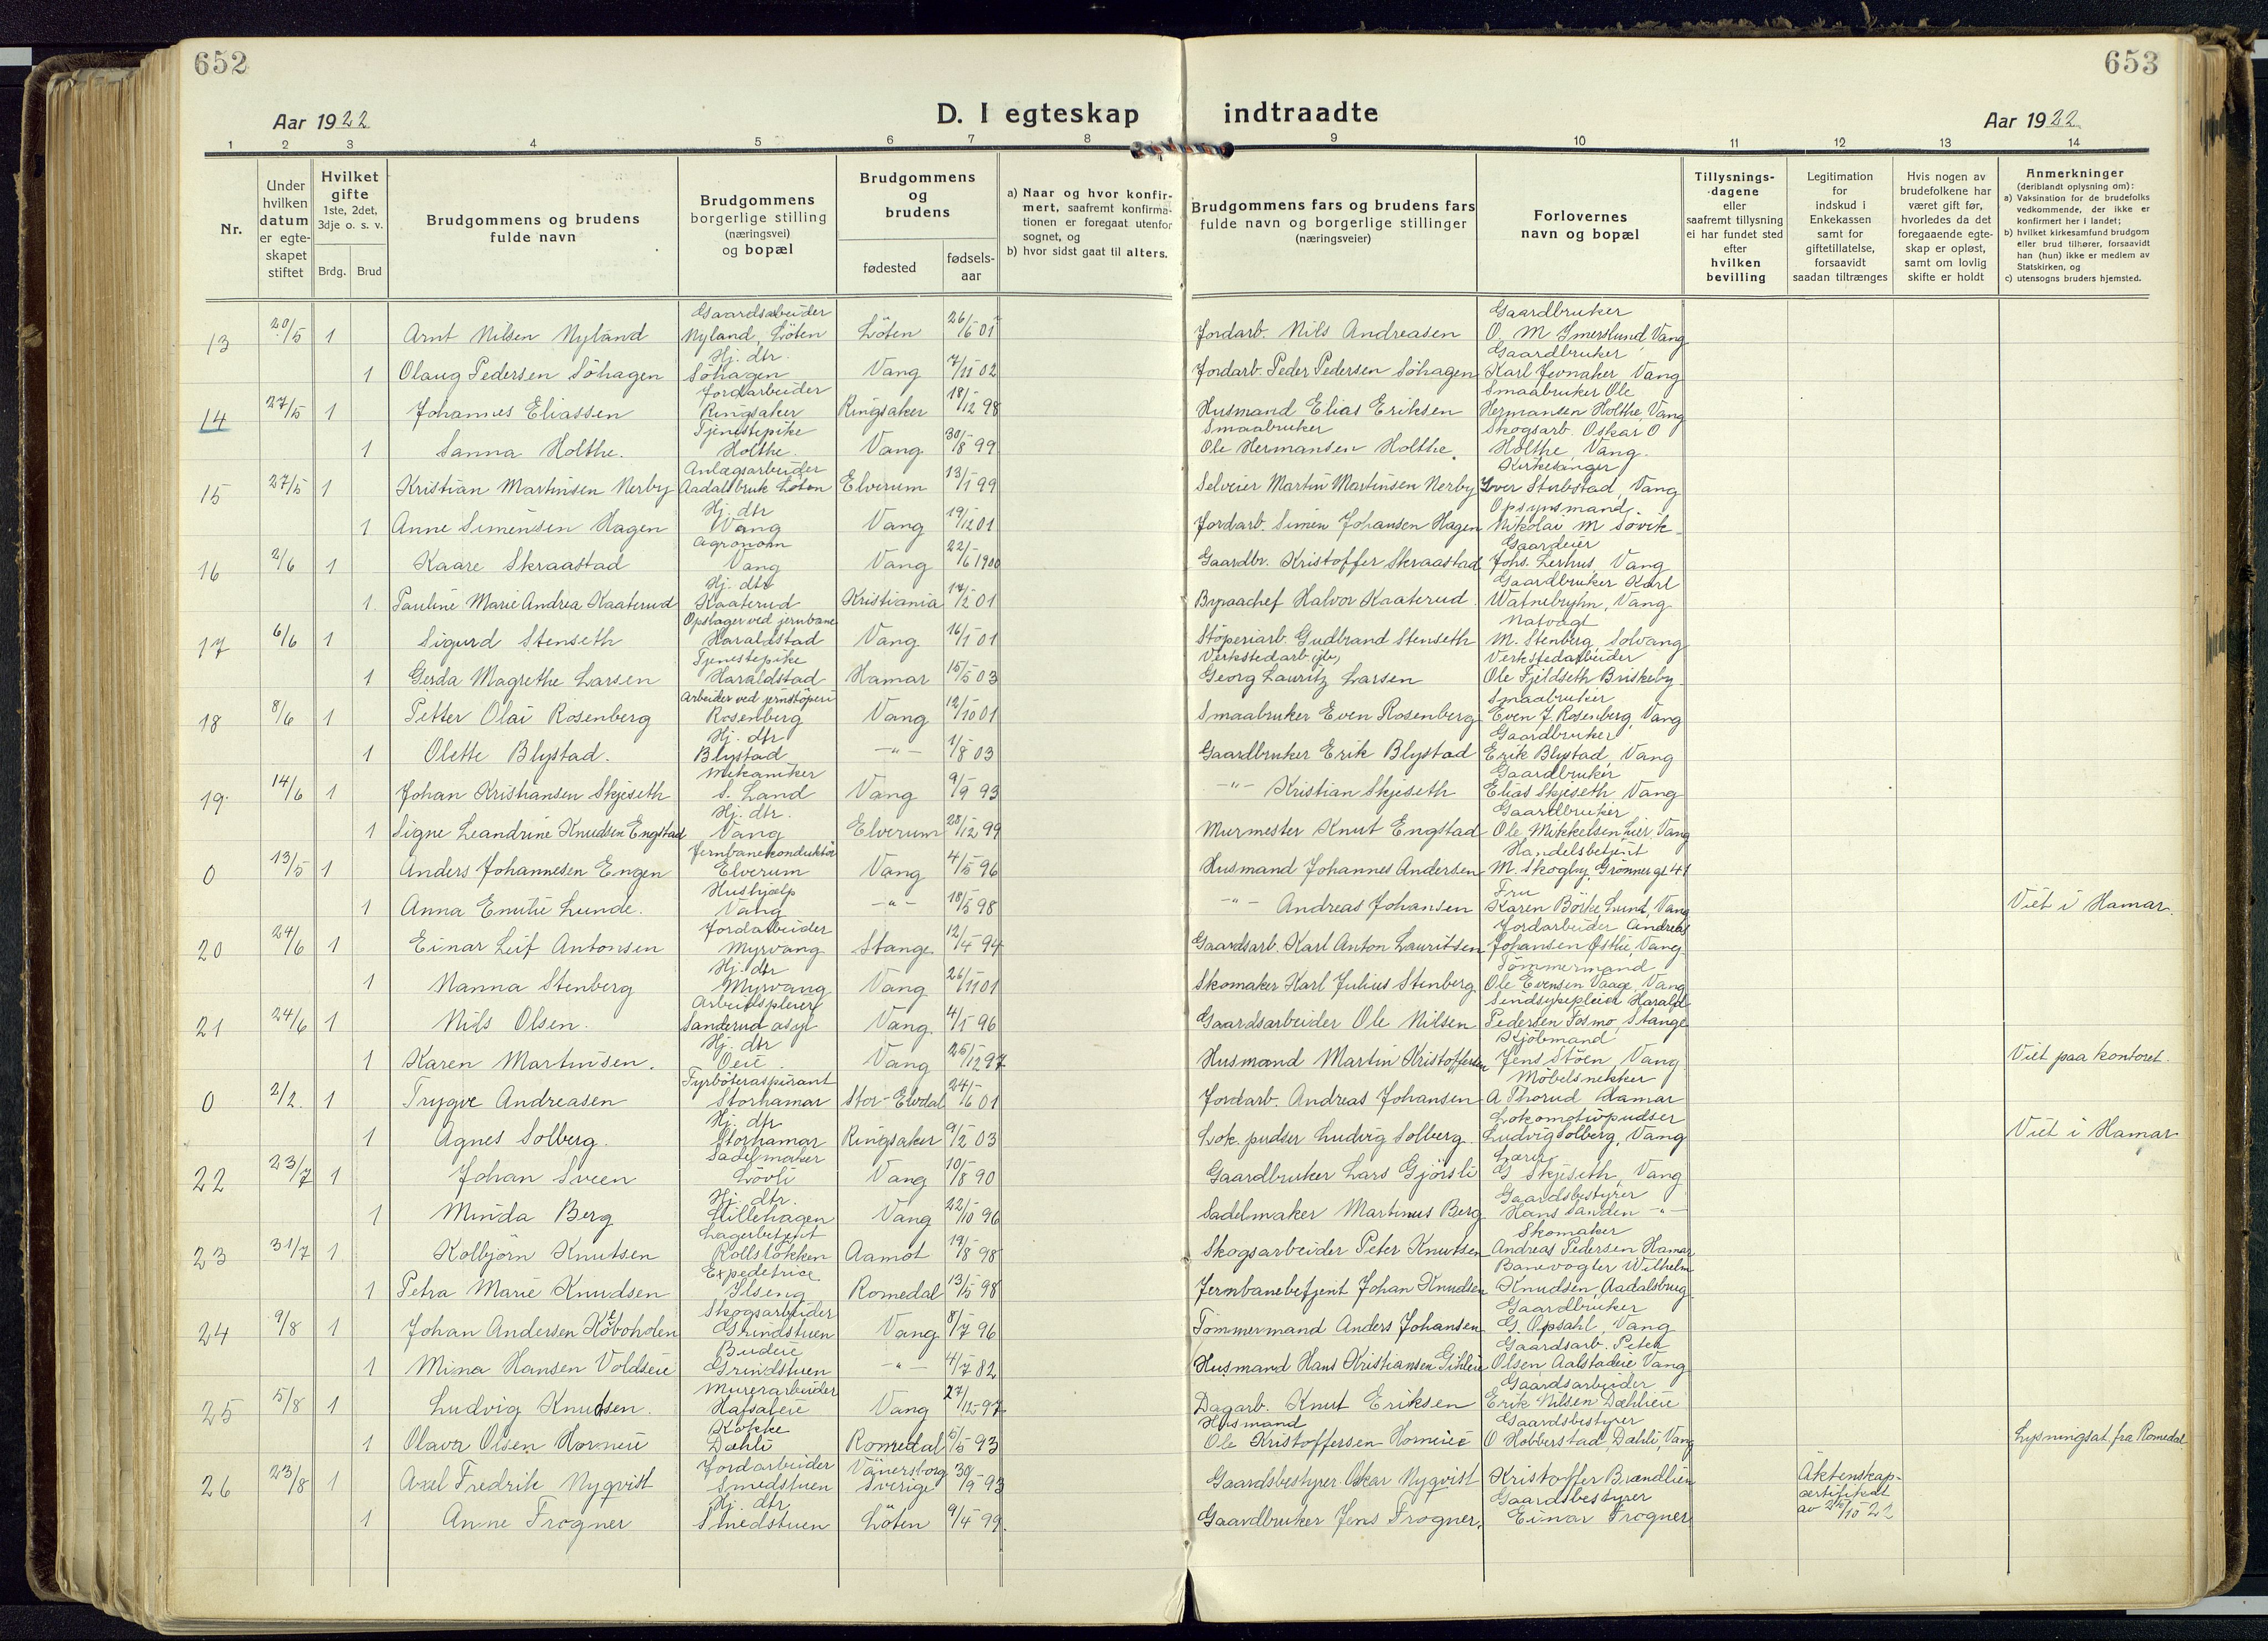 652
653
Aar 1922
D. I egteskap indtraadte
Aar 1922
1 2 3 4 5 6 7 8 9 10 11 12 13 14
Nr.
Under hvilken datum er egteskapet stiftet
Hvilket gifte 1ste, 2det, 3dje o. s. v.
Brdg. Brud
Brudgommens og brudens fulde navn
Brudgommens borgerlige stilling (næringsvei) og bopæl
Brudgommens og brudens
fødested
fødselsaar
a) Naar og hvor konfirmert, saafremt konfirmationen er foregaat utenfor sognet, og
b) hvor sidst gaat til alters.
Brudgommens fars og brudens fars fulde navn og borgerlige stillinger (næringsveier)
Forlovernes navn og bopæl
Tillysningsdagene eller saafremt tillysning ei har fundet sted efter hvilken bevilling
Legitimation for indskud i Enkekassen samt for giftetillatelse, forsaavidt saadan tiltrænges
Hvis nogen av brudefolkene har været gift før, hvorledes da det foregaaende egteskap er opløst, samt om lovlig skifte er holdt
Anmerkninger (deriblandt oplysning om):
a) Vaksination for de brudefolks vedkommende, der ikke er konfirmert her i landet;
b) hvilket kirkesamfund brudgom eller brud tilhører, forsaavidt han (hun) ikke er medlem av Statskirken, og
c) utensogns bruders hjemsted.
13 20/5 1 Arnt Nilsen Nyland Gaardsarbeider Nyland, Löten Löten 26/6 01 Jordarb. Nils Andreasen Gaardbruker O. M Imerslund, Vang
1 Olaug Pedersen Söhagen Hj. dtr. Söhagen Vang 7/11 02 Jordarb. Peder Pedersen Söhagen Gaardbruker Karl Jevnaker Vang
14 27/5 1 Johannes Eliassen Jordarbeider Ringsaker Ringsaker 18/12 98 Husmand Elias Eriksen Smaabruker Ole Hermansen Holthe, Vang
1 Sanna Holthe. Tjenestepike Holthe. Vang 30/8 99 Smaabruker Ole Hermansen Holthe. Skogsarb. Oskar O Holthe, Vang.
15 27/5 1 Kristian Martinsen Nerby Anlægsarbeider Aadalsbruk Löten Elverum 13/1 99 Selveier Martin Martinsen Nerby Kirkesanger Iver Stubstad, Vang
1 Anne Simensen Hagen Hj. dtr Vang Vang 19/12 01 Jordarb. Simen Johansen Hagen Opsynsmand Nikolai M Sövik
16 2/6 1 Kaare Skraastad Agronom Vang Vang 22/6 1900 Gaardbr. Kristoffer Skraastad Gaardeier Johs. Lerhus, Vang
1. Pauline Marie Andrea Kaaterud Hj. dtr Kaaterud Kristiania 17/2 01 Byraachef Halvor Kaaterud. Gaardbruker Karl Watnebryn, Vang
17 6/6 1 Sigurd Stenseth Opslager ved jernbane Haraldstad Vang 16/1 01 Störperiarb. Gudbrand Stenseth M. Stenberg, Solvang
1 Gerda Magrethe Larsen Tjenestepike Haraldstad Hamar 15/5 03 Verkstedarb. Georg Lauritz Larsen Verkstedarbeider Ole Fjeldseth Briskeby
18 8/6 1 Petter Olai Rosenberg Arbeider ved jernstöperi Rosenberg Vang 12/10 01 Smaabruker Even Rosenberg Smaabruker Even J. Rosenberg, Vang
1 Olette Blystad. Hj. dtr Blystad -"- 1/8 03 Gaardbruker Erik Blystad Gaardbruker Erik Blystad, Vang
19. 14/6 1 Johan Kristiansen Skjeseth Mekaniker S. Land Vang 9/9 93 -"- Kristian Skjeseth Gaardbruker Elias Skjeseth, Vang
1 Signe Leandrine Knudsen Engstad Hj. dtr. Vang Elverum 28/12 99 Murmester Knut Engstad Gaardbruker Ole Mikkelsen Lier, Vang
0 13/5 1 Anders Johannesen Engen Jernbanekonduktör Elverum Vang 4/5 96 Husmand Johannes Andersen Handelsbetjent M. Skogby, Grönnegt 41
1 Anna Emilie Lunde. Hushjælp Vang -"- 18/5 98 -"- Andreas Johansen Fru Karen Börke Lund, Vang Viet i Hamar.
20 24/6 1 Einar Leif Antonsen Jordarbeider Myrvang Stange 12/4 94 Gaardsarb. Karl Anton Lauritsen Jordarbeider Andreas Johansen Østlie, Vang
1 Nanna Stenberg Hj. dtr Myrvang Vang 26/11 01 Skomaker Karl Julius Stenberg Tömmermand Ole Evensen Vaage, Vang
21 24/6 1 Nils Olsen. Arbeidspleier Sanderud asyl Vang. 4/1 96 Gaardsarbeider Ole Nilsen Sindsykepleier Harald Pedersen Fosmo, Stange
1 Karen Martinsen. Hj. dtr Oeie Vang 25/12 97 Husmand Martin Kristoffersen Kjöbmand Jens Stöen, Vang Viet paa kontoret.
0 2/2. 1 Trygve Andreasen Fyrböteraspirant Storhamar Stor-Elvdal 24/6 01 Jordarb. Andreas Johansen Möbelsnekker A Thorud Hamar
1 Agnes Solberg. Hj. dtr Storhamar Ringsaker 9/2 03 Lok. pudser Ludvig Solberg. Lokomotivpudser Ludvig Solberg, Vang Viet i Hamar
22 23/7 1 Johan Sveen Sadelmaker Lövli Vang 10/8 90 Gaardbruker Lars Gjörsli Lærer G Skjeseth, Vang
1 Minda Berg Hj. dtr. Lillehagen Vang 22/10 96 Sadelmaker Martinus Berg Gaardsbestyrer Hans Sanden -"-
23 31/7 1 Kolbjörn Knutsen Lagerbetjent Rollslökken Aamot 19/8 98 Skogsarbeider Peter Knutsen Skomaker Andreas Pedersen Hamar
1 Petra Marie Knudsen Expeditrice Ilseng Romedal 13/5 98 Jernbanebetjent Johan Knudsen Banevogter Wilhelm Knudsen, Aadalsbrug
24 9/8 1 Johan Andersen Skogsarbeider Grindstuen Vang 8/7 96 Tömmermand Anders Johansen Gaardbruker G. Opsahl, Vang
1 Mina Hansen Voldseie Budeie Grindstuen -"- 4/7 82 Husmand Hans Kristiansen Gihleie Gaardsarb. Peter Olsen, Aalstadeie Vang
25 5/8 1 Ludvig Knudsen. Murerarbeider Hafsaleie Vang 27/12 97 Dagarb. Knut Eriksen Gaardsarbeider Erik Nilsen Dæhlieie
1 Olava Olsen Horneie Kokke Dæhli Romedal 5/5 93 Husmand Ole Kristoffersen Horneie Gaardsbestyrer O Hobberstad, Dæhli, Vang Lysningsat. fra Romedal
26 23/8 1 Axel Fredrik Nyqvist Jordarbeider Smedstuen Vänersborg Sverige 30/9 93 Gaardsbestyrer Oskar Nyqvist Kristoffer Brændlien Äktenskapcertifikat
1 Anne Frogner Hj. dtr. Smedstuen Löten 9/4 99. Gaardbruker Jens Frogner. Gaardsbestyrer Einar Frogner